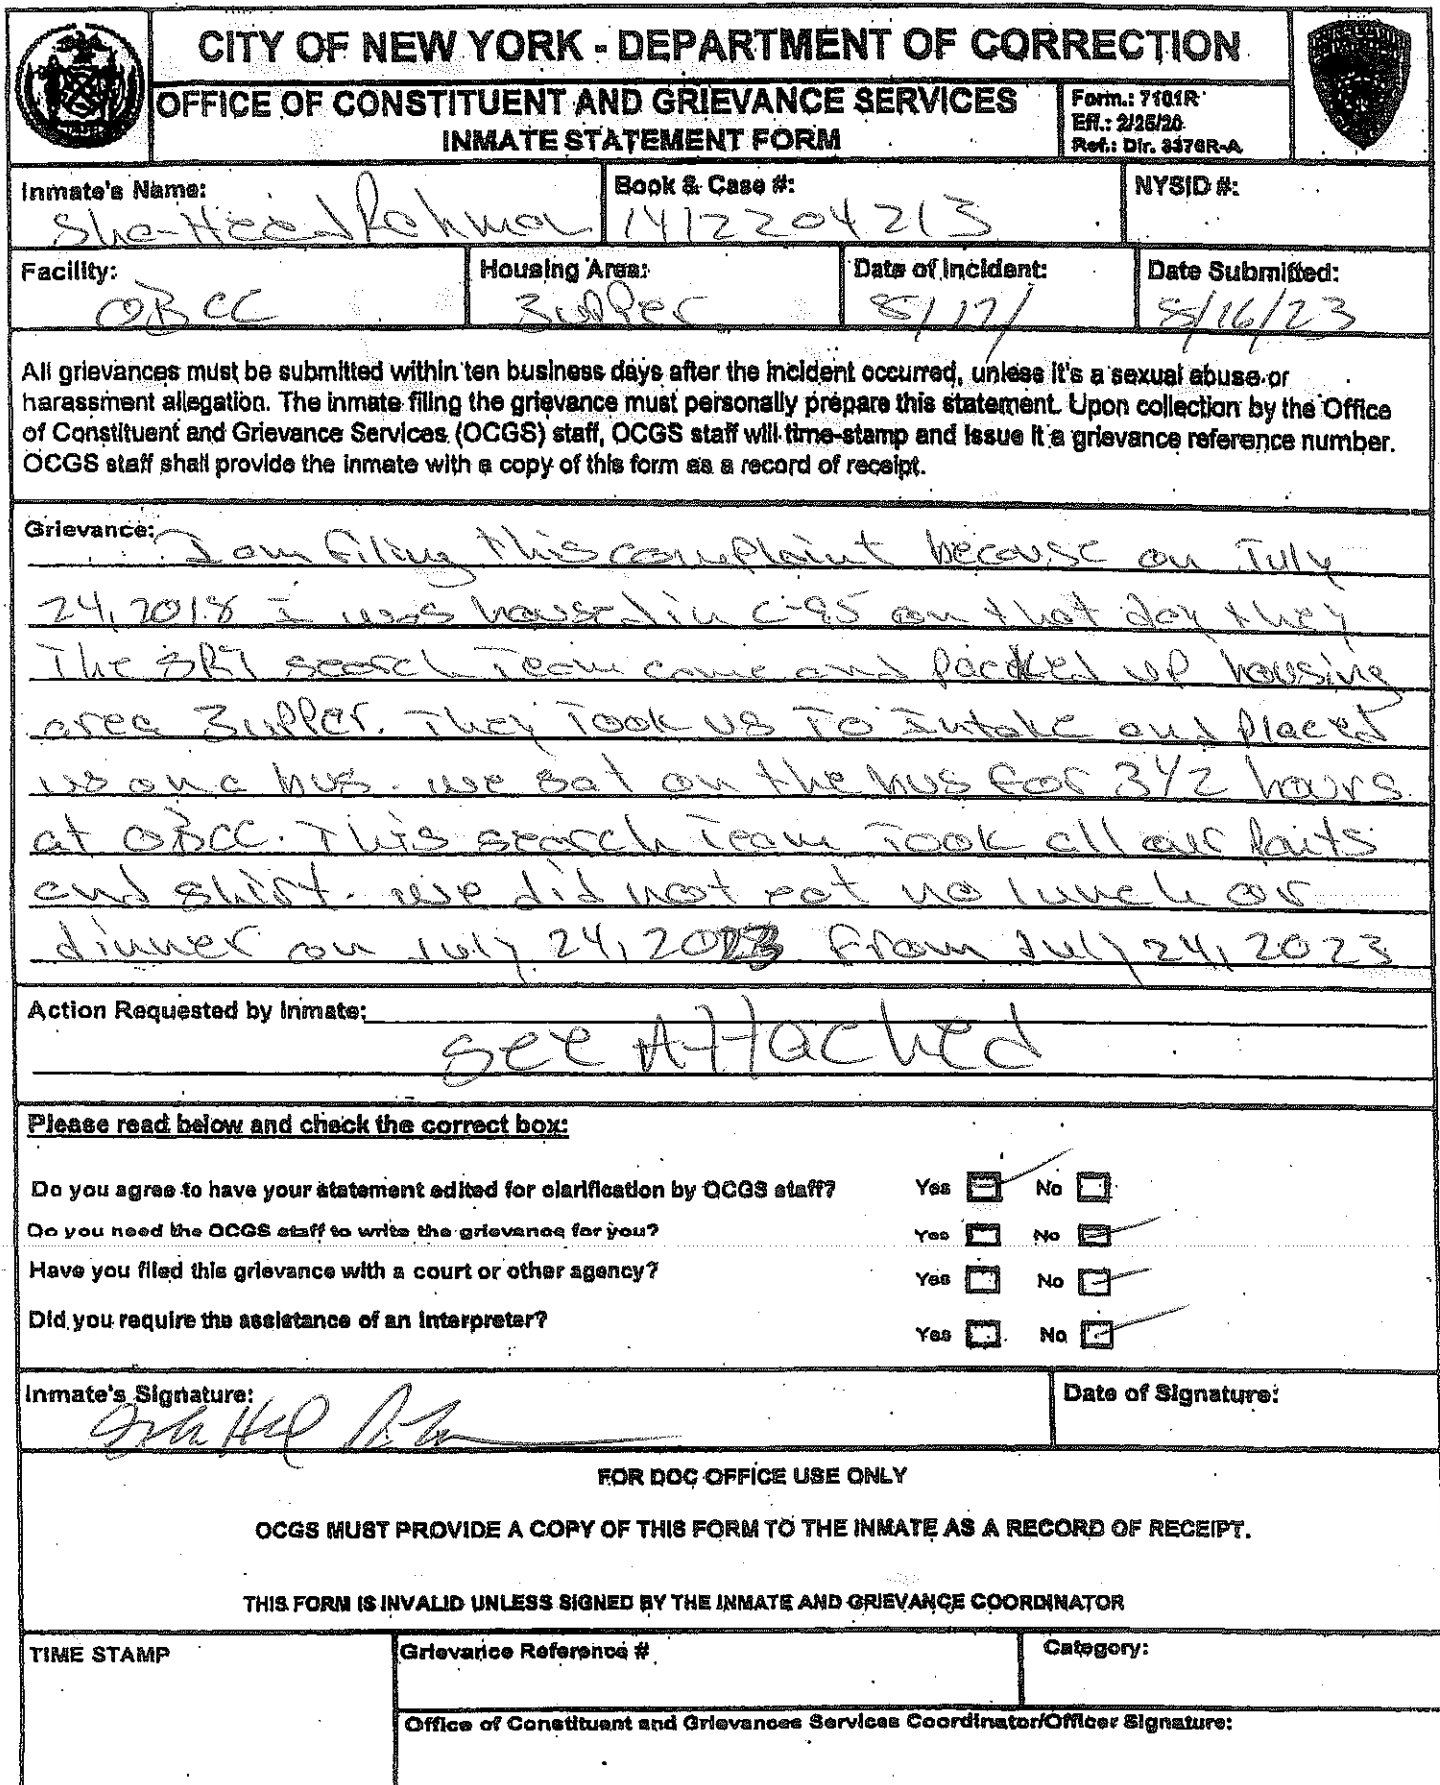 CITY OF NEW YORK - DEPARTMENT OF CORRECTION
OFFICE OF CONSTITUENT AND GRIEVANCE SERVICES
INMATE STATEMENT FORM
Form.: 7101R
Eff.: 2/25/20
Ref.: Dir. 3376R-A
Inmate's Name:
She-Heed Rahman
Book & Case #:
1412204213
NYSID #:
Facility:
OBCC
Housing Area:
3upper
Date of Incident:
8/17/
Date Submitted:
8/16/23
All grievances must be submitted within ten business days after the incident occurred, unless it's a sexual abuse or
harassment allegation. The inmate filing the grievance must personally prepare this statement. Upon collection by the Office
of Constituent and Grievance Services (OCGS) staff, OCGS staff will time-stamp and issue it a grievance reference number.
OCGS staff shall provide the inmate with a copy of this form as a record of receipt.
Grievance:
I am filing this complaint because on July
24, 2018 I was housed in C-95 on that day they
The search Team came and packed up housing
area 3upper. They Took us To Intake and placed
us on a bus. we sat on the bus for 3 1/2 hours
at OBCC. This search Team Took all our
and shirt. we did not eat no lunch or
dinner on July 24, 2023 From July 24, 2023
Action Requested by Inmate:
see Attached
Please read below and check the correct box:
Do you agree to have your statement edited for clarification by OCGS staff? Yes No
Do you need the OCGS staff to write the grievance for you? Yes No
Have you filed this grievance with a court or other agency? Yes No
Did you require the assistance of an interpreter? Yes No
Inmate's Signature:
Date of Signature:
FOR DOC OFFICE USE ONLY
OCGS MUST PROVIDE A COPY OF THIS FORM TO THE INMATE AS A RECORD OF RECEIPT.
THIS FORM IS INVALID UNLESS SIGNED BY THE INMATE AND GRIEVANCE COORDINATOR
TIME STAMP
Grievance Reference #
Category:
Office of Constituant and Grievances Services Coordinator/Officer Signature: